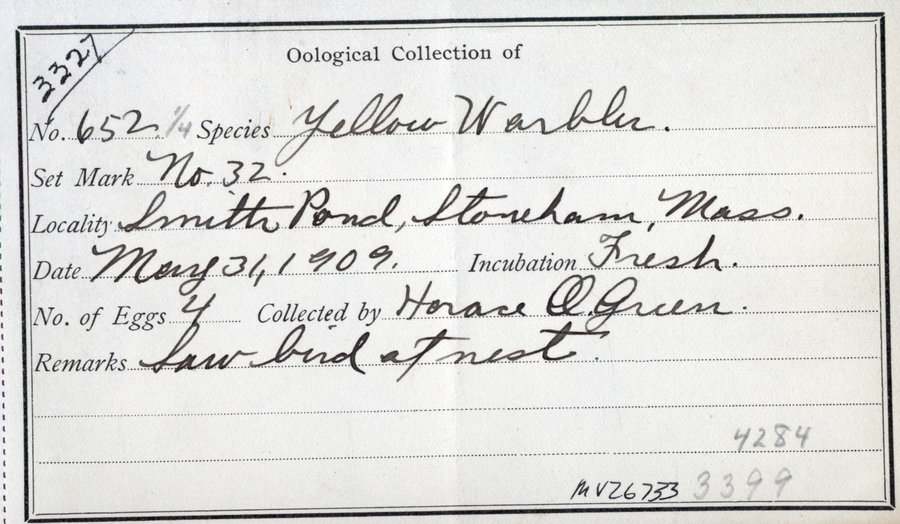 3327
Oological Collection of
No. 652 1/4 Species Yellow Warbler.
Set Mark No. 32.
Locality Smith Pond, Stoneham, Mass.
Date May 31, 1909. Incubation Fresh.
No. of Eggs 4 Collected by Horace O. Green.
Remarks Saw bird at nest.
4284
MVZ6733 3399